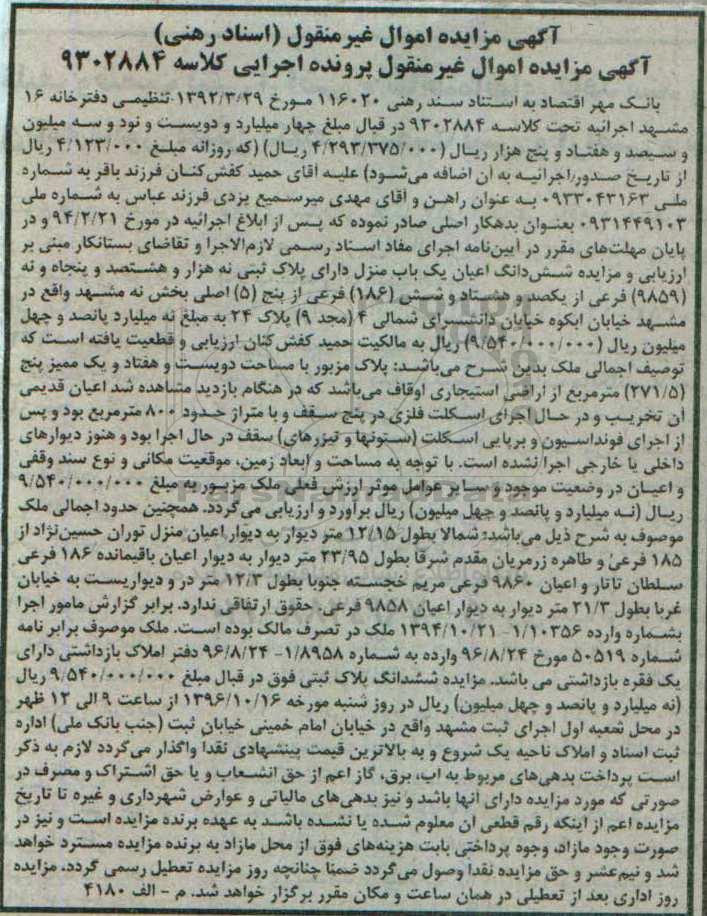 آگهی مزایده اموال غیرمنقول (اسناد رهنی)
آگهی مزایده اموال غیرمنقول پرونده اجرایی کلاسه ۹۳۰۲۸۸۴
بانک مهر اقتصاد به استناد سند رهنی ۱۱۶۰۲۰ مورخ ۱۳۹۲/۳/۲۹ تنظیمی دفترخانه ۱۶
مشهد اجرائیه تحت کلاسه ۹۳۰۲۸۸۴ در قبال مبلغ چهار میلیارد و دویست و نود و سه میلیون
و سیصد و هفتاد و پنج هزار ریال (۴/۲۹۳/۳۷۵/۰۰۰ ریال) (که روزانه مبلغ ۴/۱۲۳/۰۰۰ ریال
از تاریخ صدور اجرائیه به آن اضافه می‌شود) علیه آقای حمید کفش‌کنان فرزند باقر به شماره
ملی ۰۹۳۳۰۴۳۱۶۳ به عنوان راهن و آقای مهدی میرسمیع یزدی فرزند عباس به شماره ملی
۰۹۳۱۴۴۹۱۰۳ بعنوان بدهکار اصلی صادر نموده که پس از ابلاغ اجرائیه در مورخ ۹۴/۲/۲۱ و در
پایان مهلت‌های مقرر در آیین‌نامه اجرای مفاد اسناد رسمی لازم‌الاجرا و تقاضای بستانکار مبنی بر
ارزیابی و مزایده شش‌دانگ اعیان یک باب منزل دارای پلاک ثبتی نه هزار و هشتصد و پنجاه و نه
(۹۸۵۹) فرعی از یکصد و هشتاد و شش (۱۸۶) فرعی از پنج (۵) اصلی بخش نه مشهد واقع در
مشهد خیابان ابکوه خیابان دانشسرای شمالی ۴ (مجد ۹) پلاک ۲۴ به مبلغ نه میلیارد پانصد و چهل
میلیون ریال (۹/۵۴۰/۰۰۰/۰۰۰) ریال به مالکیت حمید کفش‌کنان ارزیابی و قطعیت یافته است که
توصیف اجمالی ملک بدین شرح می‌باشد: پلاک مزبور با مساحت دویست و هفتاد و یک ممیز پنج
(۲۷۱/۵) مترمربع از اراضی استیجاری اوقاف می‌باشد که در هنگام بازدید مشاهده شد اعیان قدیمی
آن تخریب و در حال اجرای اسکلت فلزی در پنج سقف و با متراژ حدود ۸۰۰ مترمربع بود و پس
از اجرای فونداسیون و برپایی اسکلت (ستونها و تیرزهای) سقف در حال اجرا بود و هنوز دیوارهای
داخلی یا خارجی اجرا نشده است. با توجه به مساحت و ابعاد زمین، موقعیت مکانی و نوع سند وقفی
و اعیان در وضعیت موجود و سایر عوامل موثر ارزش فعلی ملک مزبور به مبلغ ۹/۵۴۰/۰۰۰/۰۰۰
ریال (نه میلیارد و پانصد و چهل میلیون) ریال برآورد و ارزیابی می‌گردد. همچنین حدود اجمالی ملک
موصوف به شرح ذیل می‌باشد: شمالا بطول ۱۲/۱۵ متر دیوار به دیوار اعیان منزل توران حسین‌نژاد از
۱۸۵ فرعی و طاهره زرمریان مقدم شرقا بطول ۲۳/۹۵ متر دیوار به دیوار اعیان باقیمانده ۱۸۶ فرعی
سلطان تاتار و اعیان ۹۸۶۰ فرعی مریم خجسته جنوبا بطول ۱۲/۳ متر در و دیواریست به خیابان
غربا بطول ۲۱/۳ متر دیوار به دیوار اعیان ۹۸۵۸ فرعی. حقوق ارتفاقی ندارد. برابر گزارش مامور اجرا
بشماره وارده ۱/۱۰۳۵۶- ۱۳۹۴/۱۰/۲۱ ملک در تصرف مالک بوده است. ملک موصوف برابر نامه
شماره ۵۰۵۱۹ مورخ ۹۶/۸/۲۴ وارده به شماره ۱/۸۹۵۸- ۹۶/۸/۲۴ دفتر املاک بازداشتی دارای
یک فقره بازداشتی می باشد. مزایده ششدانگ پلاک ثبتی فوق در قبال مبلغ ۹/۵۴۰/۰۰۰/۰۰۰ ریال
(نه میلیارد و پانصد و چهل میلیون) ریال در روز شنبه مورخه ۱۳۹۶/۱۰/۱۶ از ساعت ۹ الی ۱۲ ظهر
در محل شعبه اول اجرای ثبت مشهد واقع در خیابان امام خمینی خیابان ثبت (جنب بانک ملی) اداره
ثبت اسناد و املاک ناحیه یک شروع و به بالاترین قیمت پیشنهادی نقدا واگذار می‌گردد لازم به ذکر
است پرداخت بدهی‌های مربوط به اب، برق، گاز اعم از حق انشعاب و یا حق اشتراک و مصرف در
صورتی که مورد مزایده دارای آنها باشد و نیز بدهی‌های مالیاتی و عوارض شهرداری و غیره تا تاریخ
مزایده اعم از اینکه رقم قطعی آن معلوم شده یا نشده باشد به عهده برنده مزایده است و نیز در
صورت وجود مازاد، وجوه پرداختی بابت هزینه‌های فوق از محل مازاد به برنده مزایده مسترد خواهد
شد و نیم‌عشر و حق مزایده نقدا وصول می‌گردد ضمنا چنانچه روز مزایده تعطیل رسمی گردد. مزایده
روز اداری بعد از تعطیلی در همان ساعت و مکان مقرر برگزار خواهد شد. م - الف ۴۱۸۰
ParsNamadData